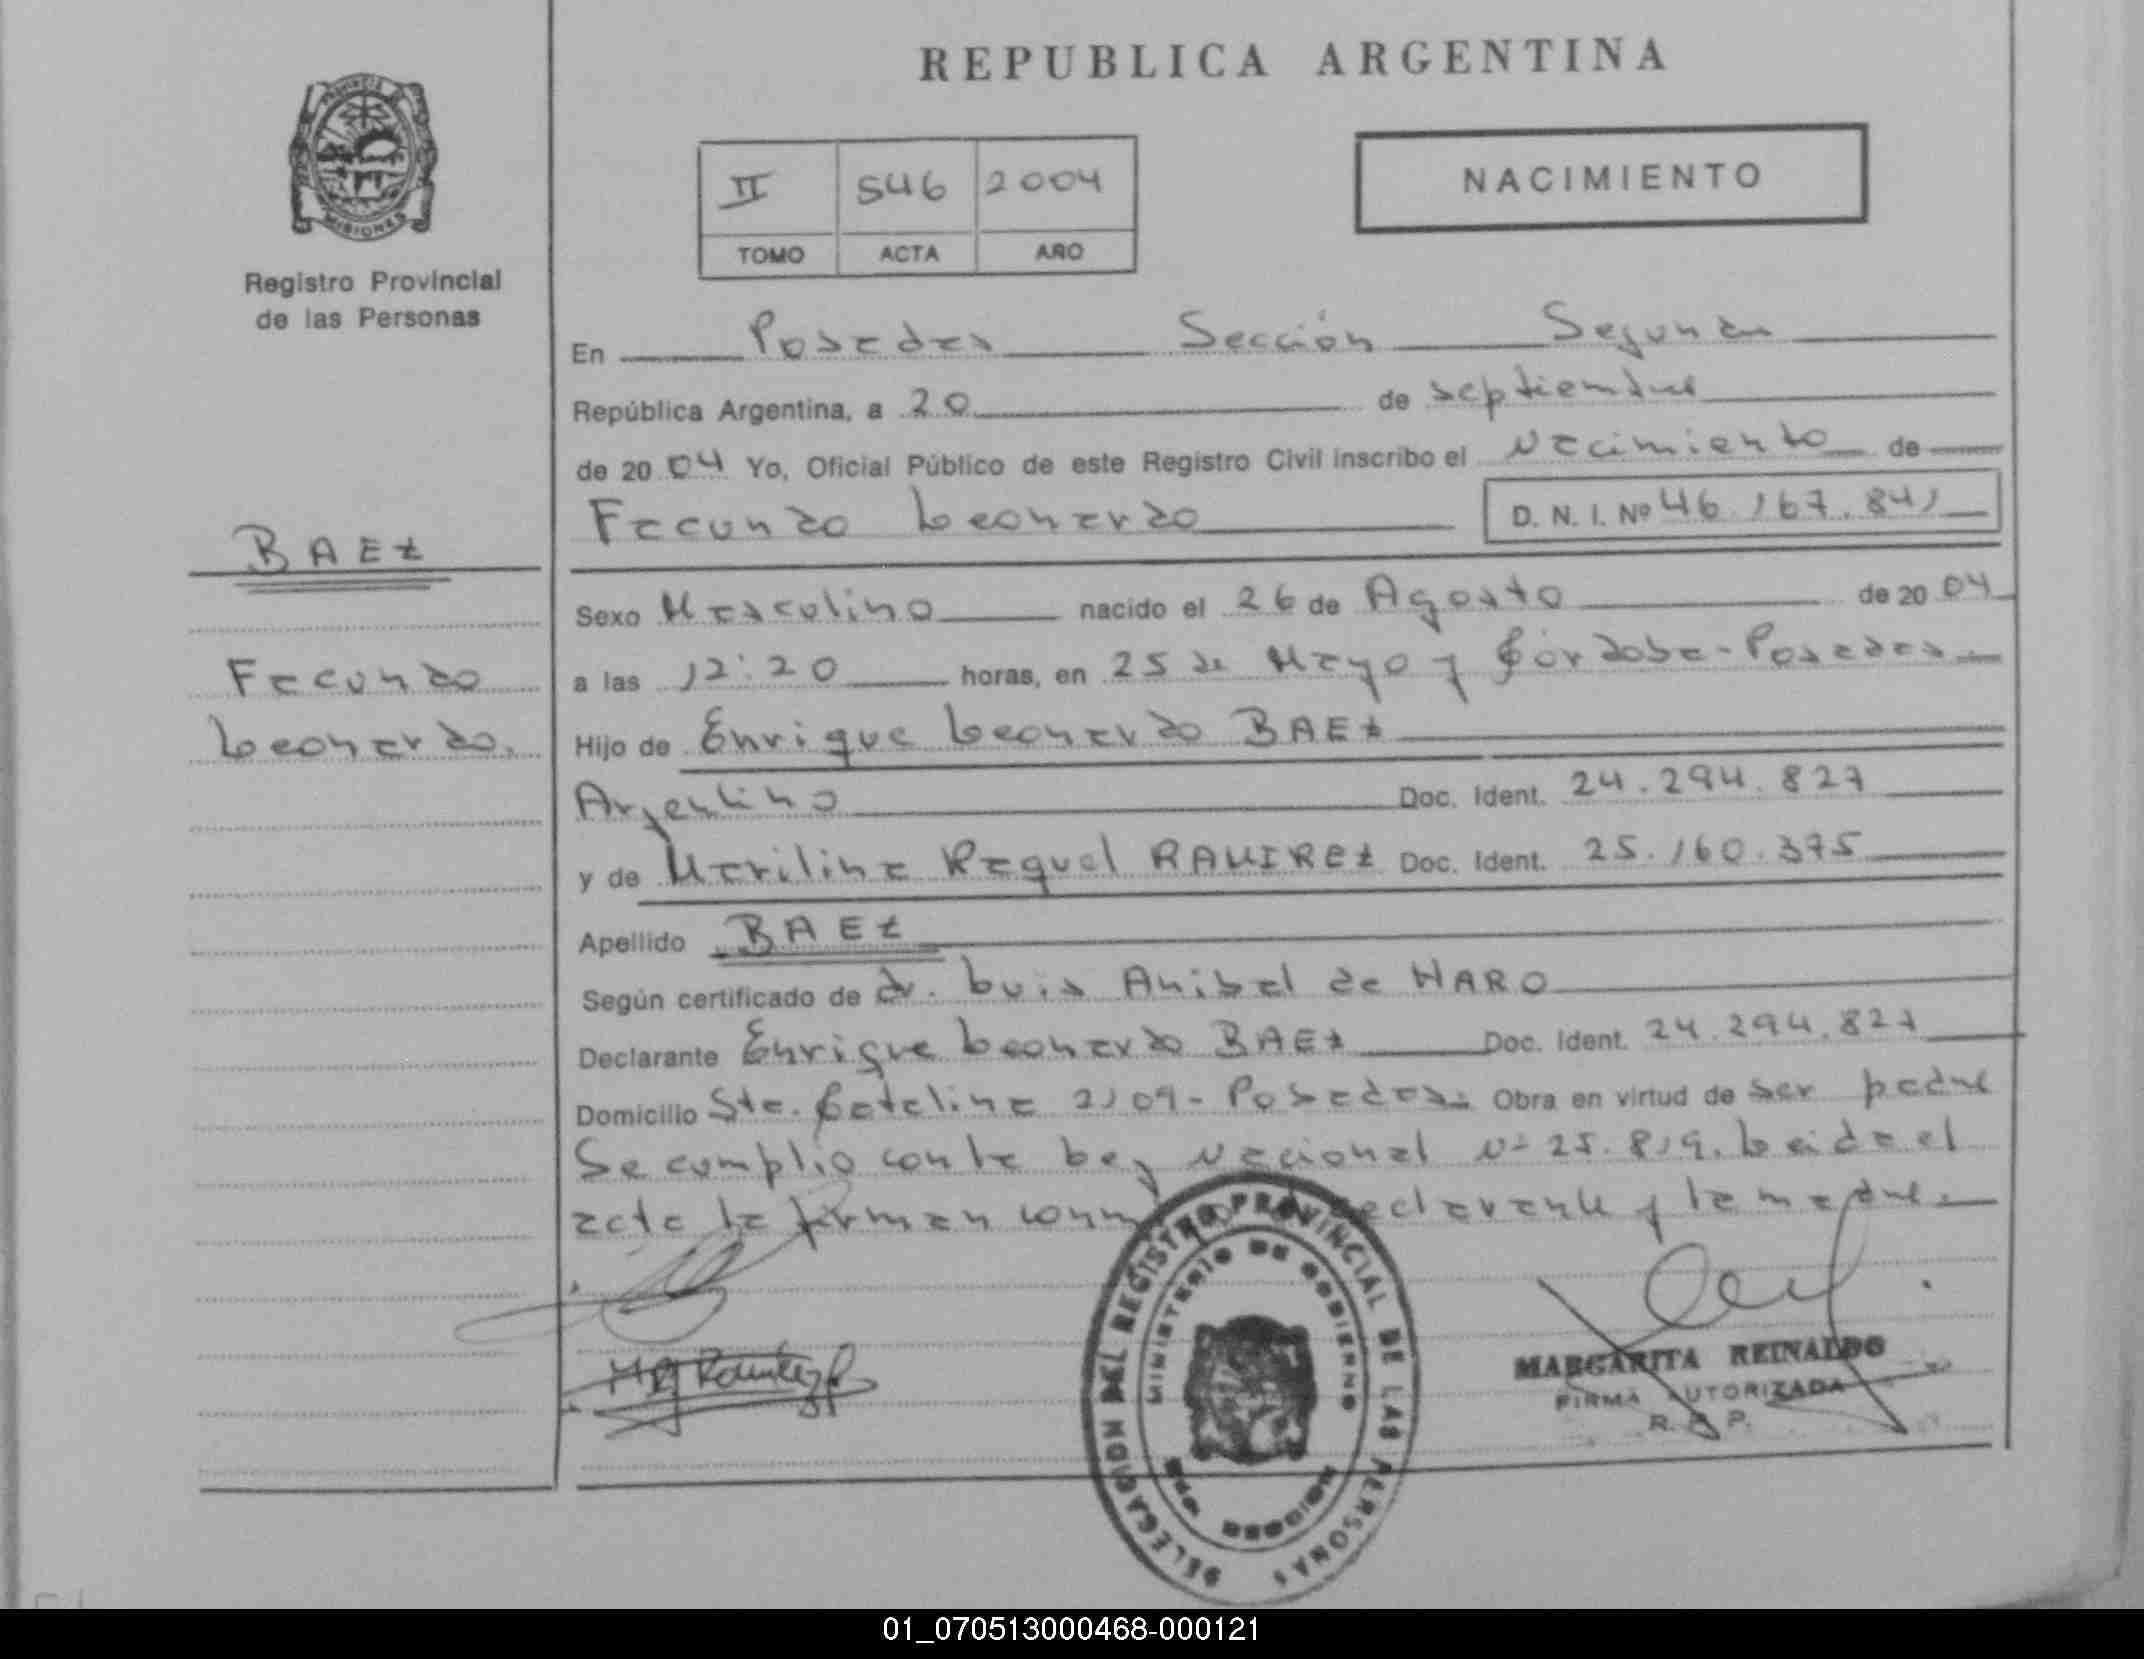 REPUBLICA ARGENTINA
PROVINCIA DE
MISIONES
Registro Provincial
de las Personas
II 546 2004
TOMO ACTA AÑO
NACIMIENTO
En Posadas Sección Segunda
República Argentina, a 20 de septiembre
de 2004 Yo, Oficial Público de este Registro Civil inscribo el Nacimiento de
Facundo Leonardo D. N. I. Nº 46.167.841
BAEZ
Facundo
Leonardo.
Sexo Masculino nacido el 26 de Agosto de 2004
a las 12:20 horas, en 25 de Mayo y Córdoba - Posadas.
Hijo de Enrique Leonardo BAEZ
Argentino Doc. Ident. 24.294.827
y de Marilina Raquel RAMIREZ Doc. Ident. 25.160.375
Apellido BAEZ
Según certificado de dr. Luis Anibal de HARO
Declarante Enrique Leonardo BAEZ Doc. Ident. 24.294.827
Domicilio Sta. Catalina 2109 - Posadas. Obra en virtud de ser padre
Se cumplio con la Ley Nacional Nº 25.819. Leida el
acta la firman conmigo declarante y la madre.
DELEGACION DEL REGISTRO PROVINCIAL DE LAS PERSONAS
MINISTERIO DE GOBIERNO
MISIONES
MARGARITA REINALDO
FIRMA AUTORIZADA
R. P. P.
01_070513000468-000121